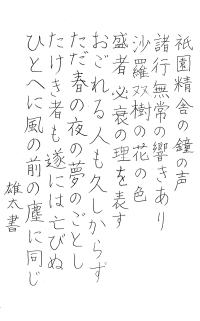 祇園精舎の鐘の声
諸行無常の響きあり
沙羅双樹の花の色
盛者必衰の理を表す
おごれる人も久しからず
ただ春の夜の夢のごとし
たけき者も遂には亡びぬ
ひとへに風の前の塵に同じ
雄太書